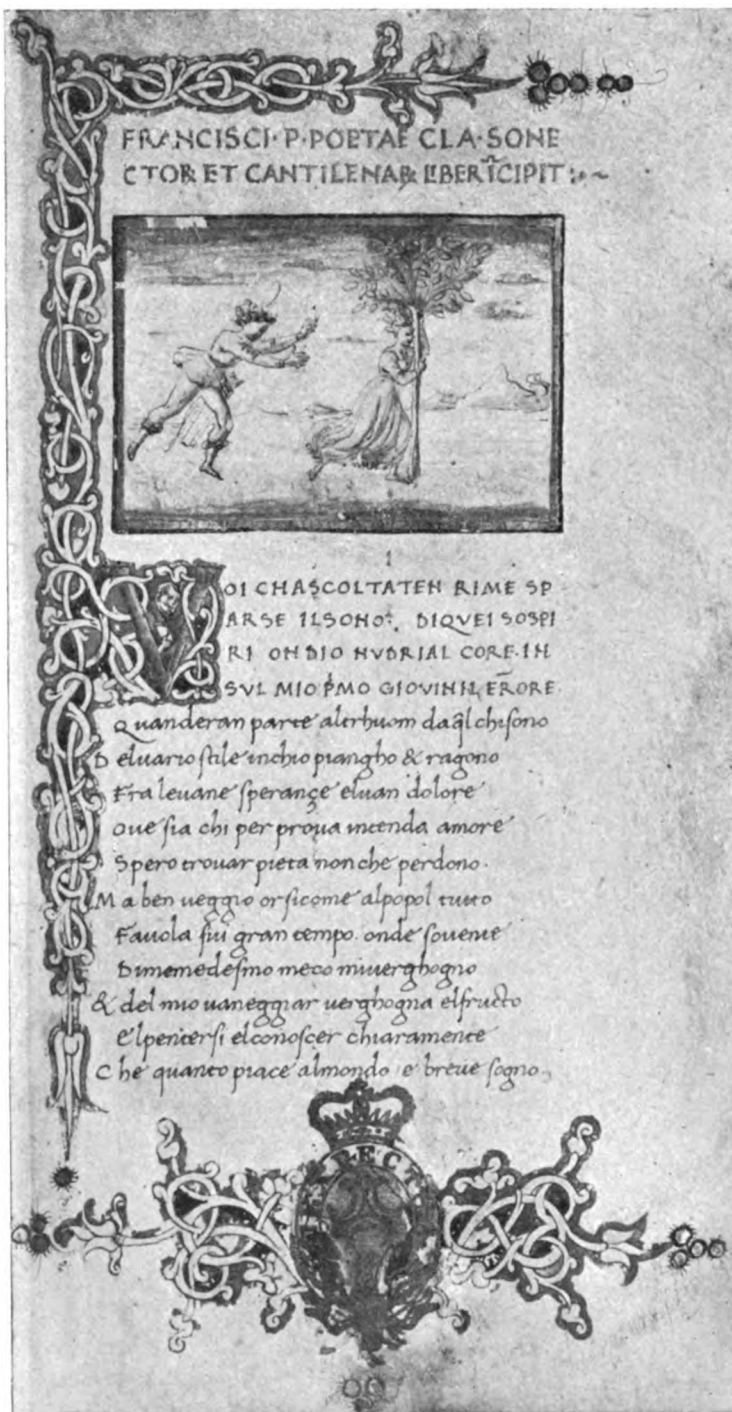 FRANCISCI·P·POETAE CLA·SONE
CTOꝶ ET CANTILENAꝶ LIBER ĪCIPIT
I
VOI CHASCOLTATEN RIME SP
ARSE ILSONO: DIQVEI SOSPI
RI ONDIO NVDRIAL CORE·IN
SVL MIO PͥMO GIOVINIL ERRORE·
Quanderan parte altrhuom da q̄l chisono
Deluario stile inchio piangho & ragono
Fra levane sperançe eluan dolore
Oue sia chi per proua intenda amore
Spero trouar pieta non che perdono·
Ma ben veggio orsicome alpopol tutto
Fauola fui gran tempo· onde souente
Dimemedesmo meco miuerghogno
& del mio uaneggiar verghogna elfructo
Elpentersi elconoscer chiaramente
Che quanto piace almondo e breue sogno·